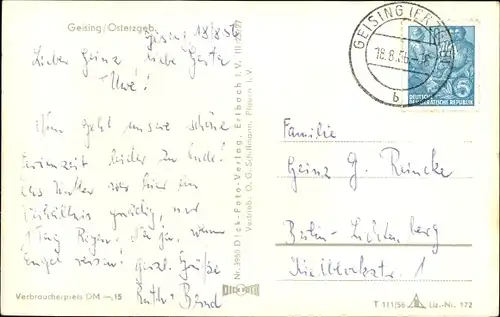 Geising/Osterzgeb.
Geising 18/8 56
Lieber Heinz, liebe Gerta
Uwe!
Nun geht unsre schöne
Ferienzeit leider zu Ende!
Das Wetter war hier im
Verhältnis gnädig, nur
1 Tag Regen. Na ja, wenn
Engel reisen! Herzl. Grüße
Ruth + Bernd
Verbraucherpreis DM –,15
Nr. 3965 Dick-Foto-Verlag, Erlbach i. V.
Vertrieb: O. G. Schiffmann, Plauen i. V.
DICK
GEISING (ERZGEB)
18.8.56
b
DEUTSCHE
DEMOKRATISCHE REPUBLIK
5
Familie
Heinz G. Reincke
Berlin-Lichtenberg
1
T 111/56 Liz.-Nr. 172